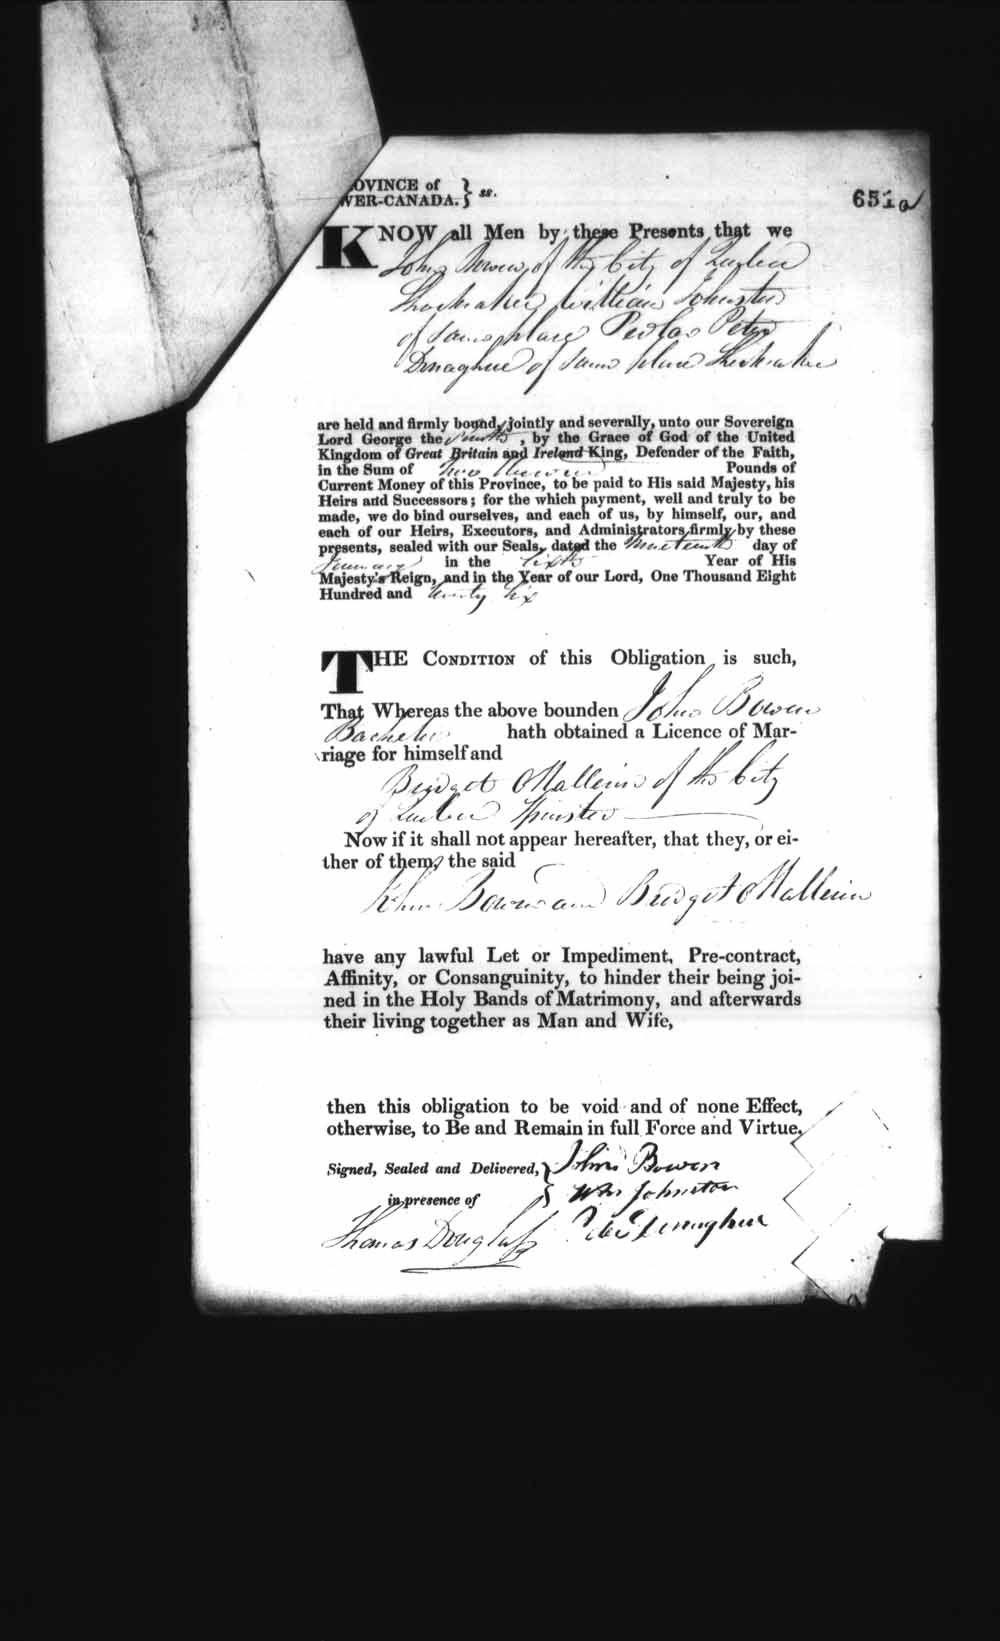 OVINCE of
WER-CANADA. } ss.
651a
KNOW all Men by these Presents that we
John Bowen of the City of Quebec
Shoemaker, William Johnston
of same place Pedlar Peter
Donaghue of same place Shoemaker
are held and firmly bound, jointly and severally, unto our Sovereign
Lord George the Fourth, by the Grace of God of the United
Kingdom of Great Britain and Ireland King, Defender of the Faith,
in the Sum of Two Hundred Pounds of
Current Money of this Province, to be paid to His said Majesty, his
Heirs and Successors; for the which payment, well and truly to be
made, we do bind ourselves, and each of us, by himself, our, and
each of our Heirs, Executors, and Administrators, firmly by these
presents, sealed with our Seals, dated the Nineteenth day of
January in the Sixth Year of His
Majesty's Reign, and in the Year of our Lord, One Thousand Eight
Hundred and twenty six
THE CONDITION of this Obligation is such,
That Whereas the above bounden John Bowen
Bachelor hath obtained a Licence of Mar-
riage for himself and
Bridget OMallein of the City
of Quebec Spinster
Now if it shall not appear hereafter, that they, or ei-
ther of them, the said
John Bowen and Bridget OMallein
have any lawful Let or Impediment, Pre-contract,
Affinity, or Consanguinity, to hinder their being joi-
ned in the Holy Bands of Matrimony, and afterwards
their living together as Man and Wife,
then this obligation to be void and of none Effect,
otherwise, to Be and Remain in full Force and Virtue.
Signed, Sealed and Delivered, } John Bowen
in presence of } Wm Johnston
Thomas Douglass Peter Donaghue